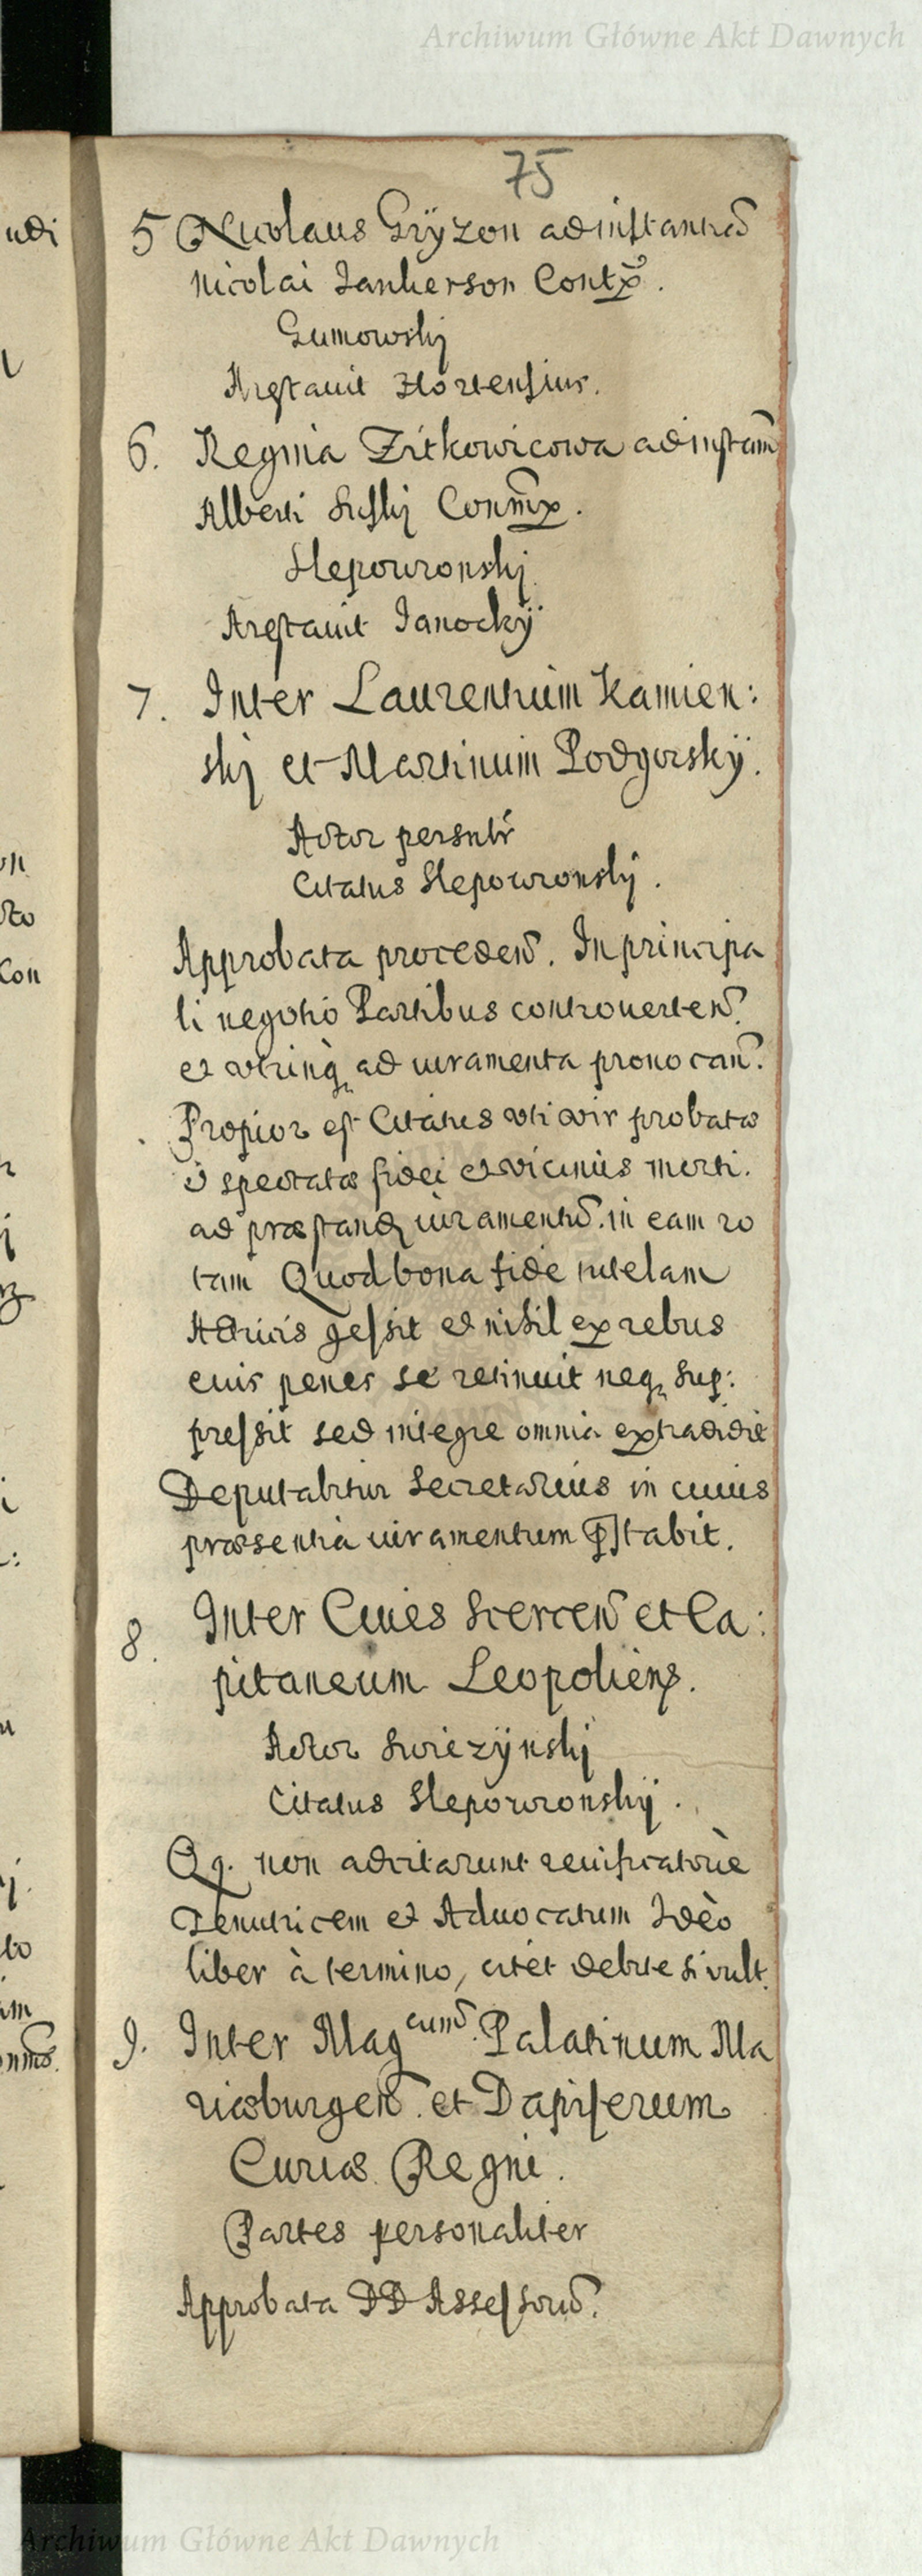 Archiwum Główne Akt Dawnych
75
5 Nicolaus Gryzon ad instantiã
Nicolai Jankerson Contx.
Gumowskj
Arestauit Hortensius.
6. Regina Zitkowicowa ad instam̃
Alberti Suskj Conm̃x.
Slepowronskj
Arestauit Janockÿ
7. Inter Laurentium Kamien:
skj et Martinum Podgorskÿ.
Actor persnlr̃
Citatus Slepowronskj.
Approbata proceden̄. In principa
li negotio Partibus controuerten̄.
et vtrinq ad iuramenta prouocan̄.
Propior est Citatus vti vir probatæ
et spectatæ fidei et vicinus morti.
ad præstand iuramentũ. in eam ro
tam Quod bona fide tutelam
Actricis gessit et nihil ex rebus
eius penes se retinuit neq sup:
pressit sed integre omnia extradidit
Deputabitur Secretarius in cuius
præsentia iuramentum p̃stabit.
8. Inter Ciues et Ca:
pitaneum Leopoliens.
Actor Swiezÿnskj
Citatus Slepowronskÿ.
Qq. non adcitarunt
Tenutricem et Aduocatum Ideò
liber à termino, citet debite si vult.
9. Inter Mag cum̃. Palatinum Ma
riæburgen̄. et Dapiferum
Curiæ Regni.
Partes personaliter
Approbata DD Assessorũ.
udi
Con
Archiwum Główne Akt Dawnych